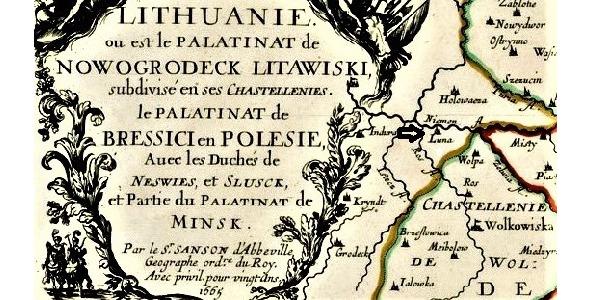 LITHUANIE.
ou est le PALATINAT de
NOWOGRODECK LITAWISKI,
subdivisé en ses CHASTELLENIES.
le PALATINAT de
BRESSICI en POLESIE,
Auec les Duchés de
NESWIES, et SLUSCK,
et Partie du PALATINAT de
MINSK.
Par le Sr. SANSON d'Abbeville
Geographe ordre. du Roy.
Avec privil. pour vingt ans,
1665
Zablotie
Nowydwor
Ostryno
Wasi
Szezucin
Holowacza
Niemon
Indura
Luna
Misty
Ros fl
Wolpa
Pia
Ros
Kryndt
CHASTELLENIE
Wolkowiska
Brzestowica
Mribolow
Miedzyr
Grodeck
DE
WOL:
Talowka
DE